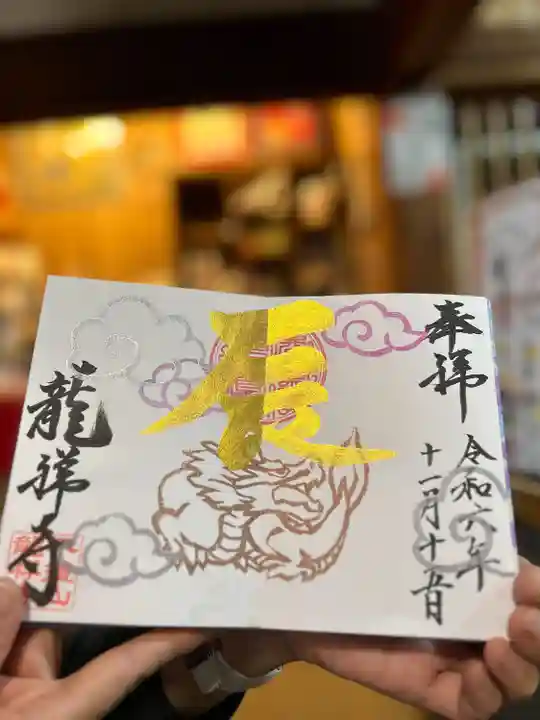 奉拝
令和六年
十一月十五日
辰
龍祥寺